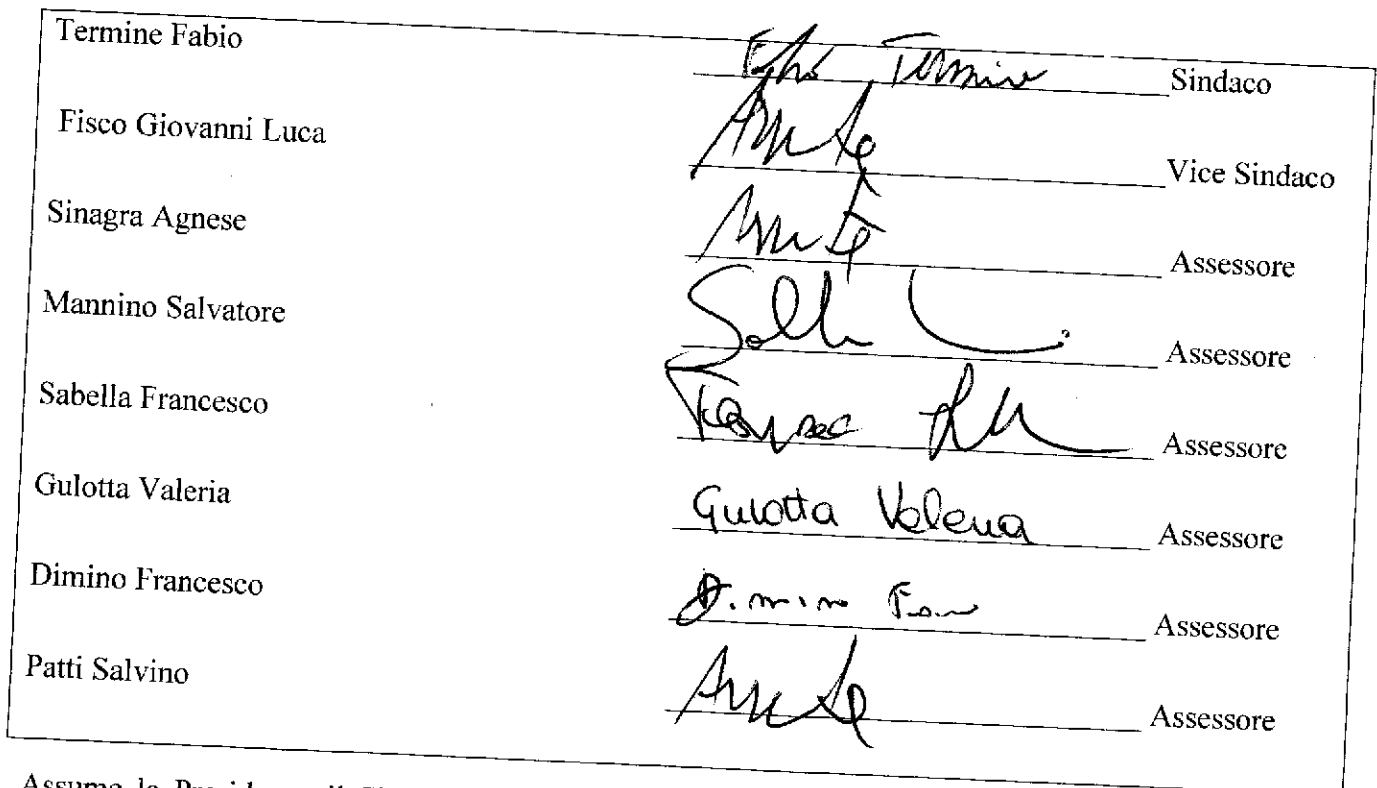 Termine Fabio Termine Sindaco
Fisco Giovanni Luca Assente Vice Sindaco
Sinagra Agnese Assente Assessore
Mannino Salvatore Assessore
Sabella Francesco Assessore
Gulotta Valeria Gulotta Valeria Assessore
Dimino Francesco Assessore
Patti Salvino Assente Assessore